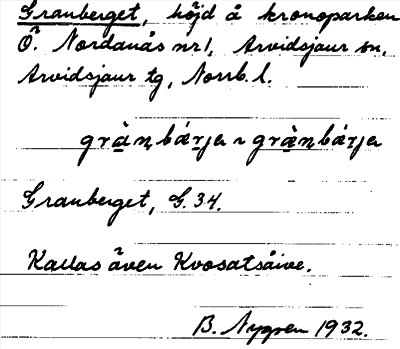 Granberget, höjd å kronoparken
Ö. Nordanås nr 1, Arvidsjaur sn,
Arvidsjaur tg, Norrb. l.
grànbárja ~ grànbárja
Granberget, G. 34.
Kallas även Kvosatsåive.
B. Nygren 1932.